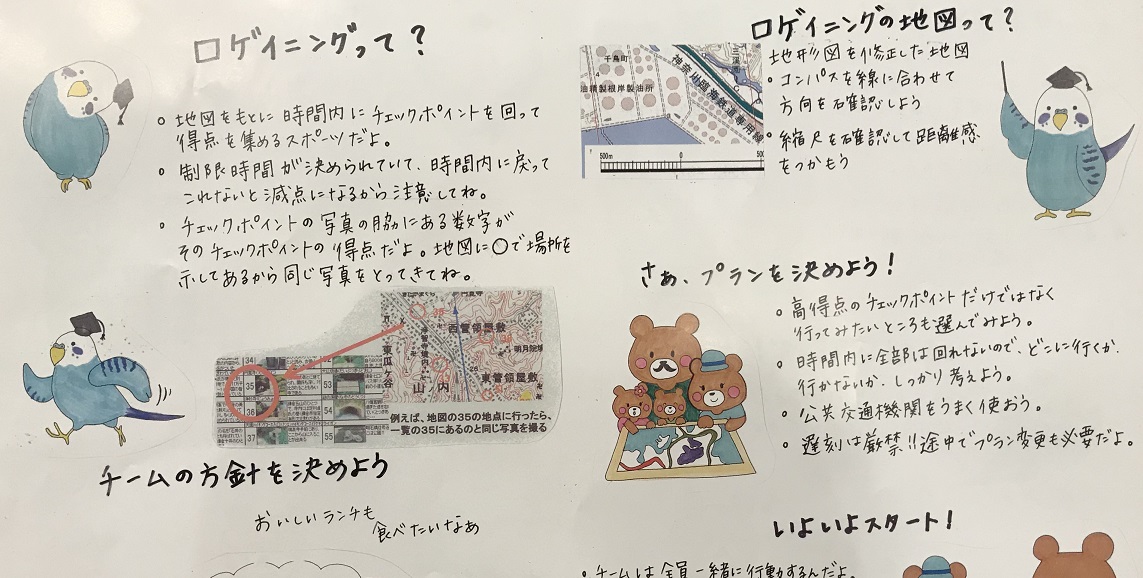 ロゲイニングって？
・地図をもとに時間内にチェックポイントを回って
得点を集めるスポーツだよ。
・制限時間が決められていて、時間内に戻って
これないと減点になるから注意してね。
・チェックポイントの写真の脇にある数字が
そのチェックポイントの得点だよ。地図に○で場所を
示してあるから同じ写真をとってきてね。
西管領屋敷
明月院
東瓜ヶ谷
山ノ内
東管領屋敷
34
35
36
37
53
54
55
例えば、地図の35の地点に行ったら、
一覧の35にあるのと同じ写真を撮る
チームの方針を決めよう
おいしいランチも
食べたいなあ
ロゲイニングの地図って？
千鳥町
油精製根岸製油所
神奈川臨海鉄道専用線
500m 0 500
地形図を修正した地図
・コンパスを線に合わせて
方向を確認しよう
・縮尺を確認して距離感
をつかもう
さぁ、プランを決めよう！
・高得点のチェックポイントだけではなく
行ってみたいところも選んでみよう。
・時間内に全部は回れないので、どこに行くか、
行かないか、しっかり考えよう。
・公共交通機関をうまく使おう。
・遅刻は厳禁!!途中でプラン変更も必要だよ。
いよいよスタート！
・チームは全員一緒に行動するんだよ。